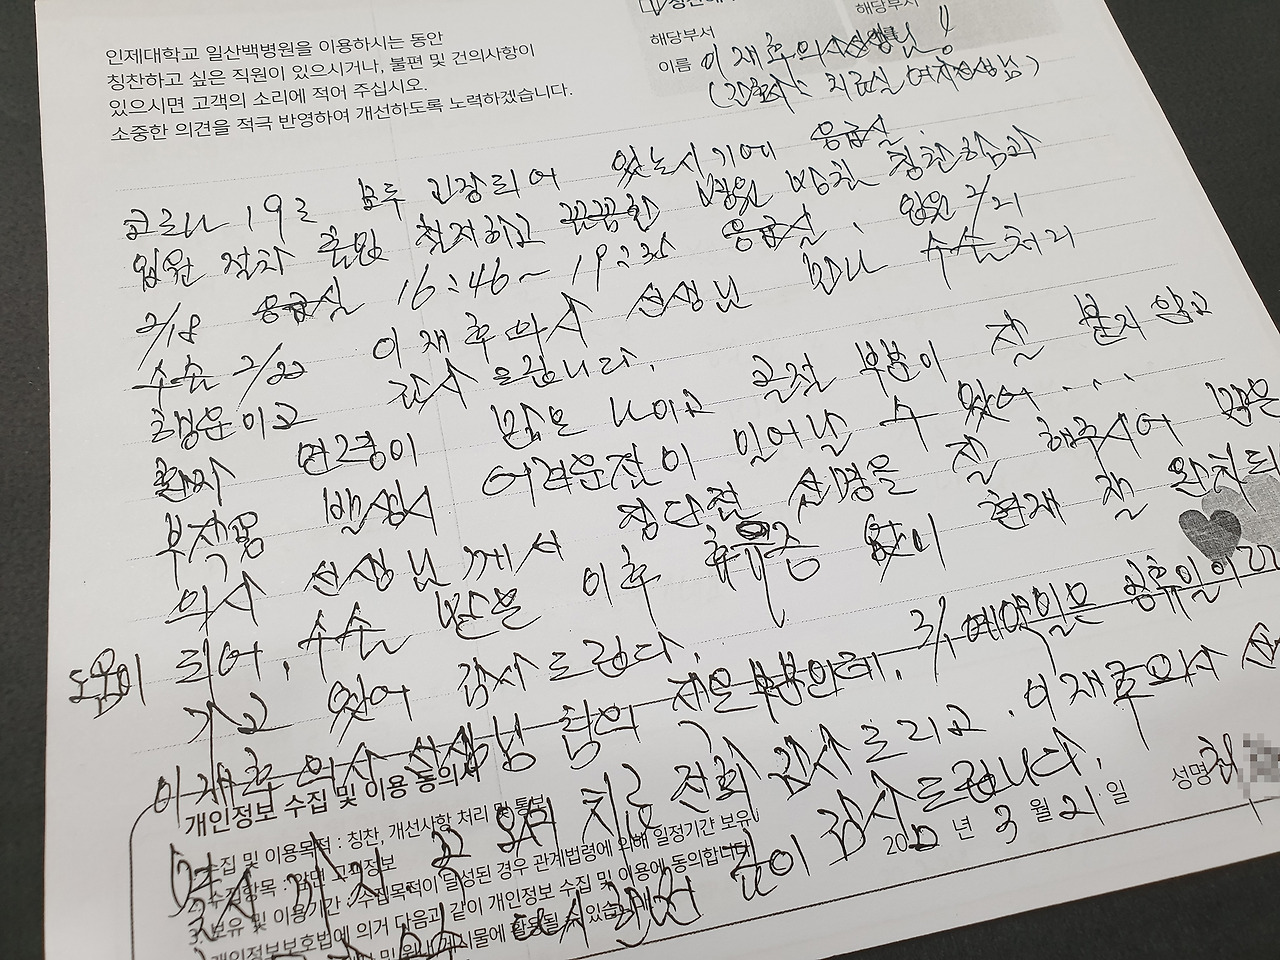 인제대학교 일산백병원을 이용하시는 동안
칭찬하고 싶은 직원이 있으시거나, 불편 및 건의사항이
있으시면 고객의 소리에 적어 주십시오.
소중한 의견을 적극 반영하여 개선하도록 노력하겠습니다.
해당부서
해당부서
이름 이재호의사선생님!
코로나 19로 모두 긴장되어 있는시기에 응급실.
입원 절차 출입 철저하고 꼼꼼한 병원 방침 칭찬하음과
2/18 응급실 16:46~19:30 응급실. 입원 2/21
수술 2/22 이재후의사 선생님 만나 수술처리
행운이고 감사 드립니다.
환자 연령이 많은 나이고 골절 부분이 잘 붙지 않고
부작용 발생시 어려운점이 일어날 수 있어....
의사 선생님께서 장단점 설명을 잘 해주시어 많은
도움이 되어. 수술 받은 이후 휴유증 없이 현재 잘 완치되
가고 있어 감사드린다.
이재호 의사 선생님 3/1 예약일은 공휴일이
치료 전화 감사드리고. 이재호의사
깊이 감사드립니다.
개인정보 수집 및 이용 동의서
수집 및 이용목적 : 칭찬, 개선사항 처리 및 통보
2. 수집항목 : 고객정보
3. 보유 및 이용기간 : 수집목적이 달성된 경우 관계법령에 의해 일정기간 보유
개인정보보호법에 의거 다음과 같이 개인정보 수집 및 이용에 동의합니다
게시물에 활용될 수 있습
2020 년 3 월 21 일 성명